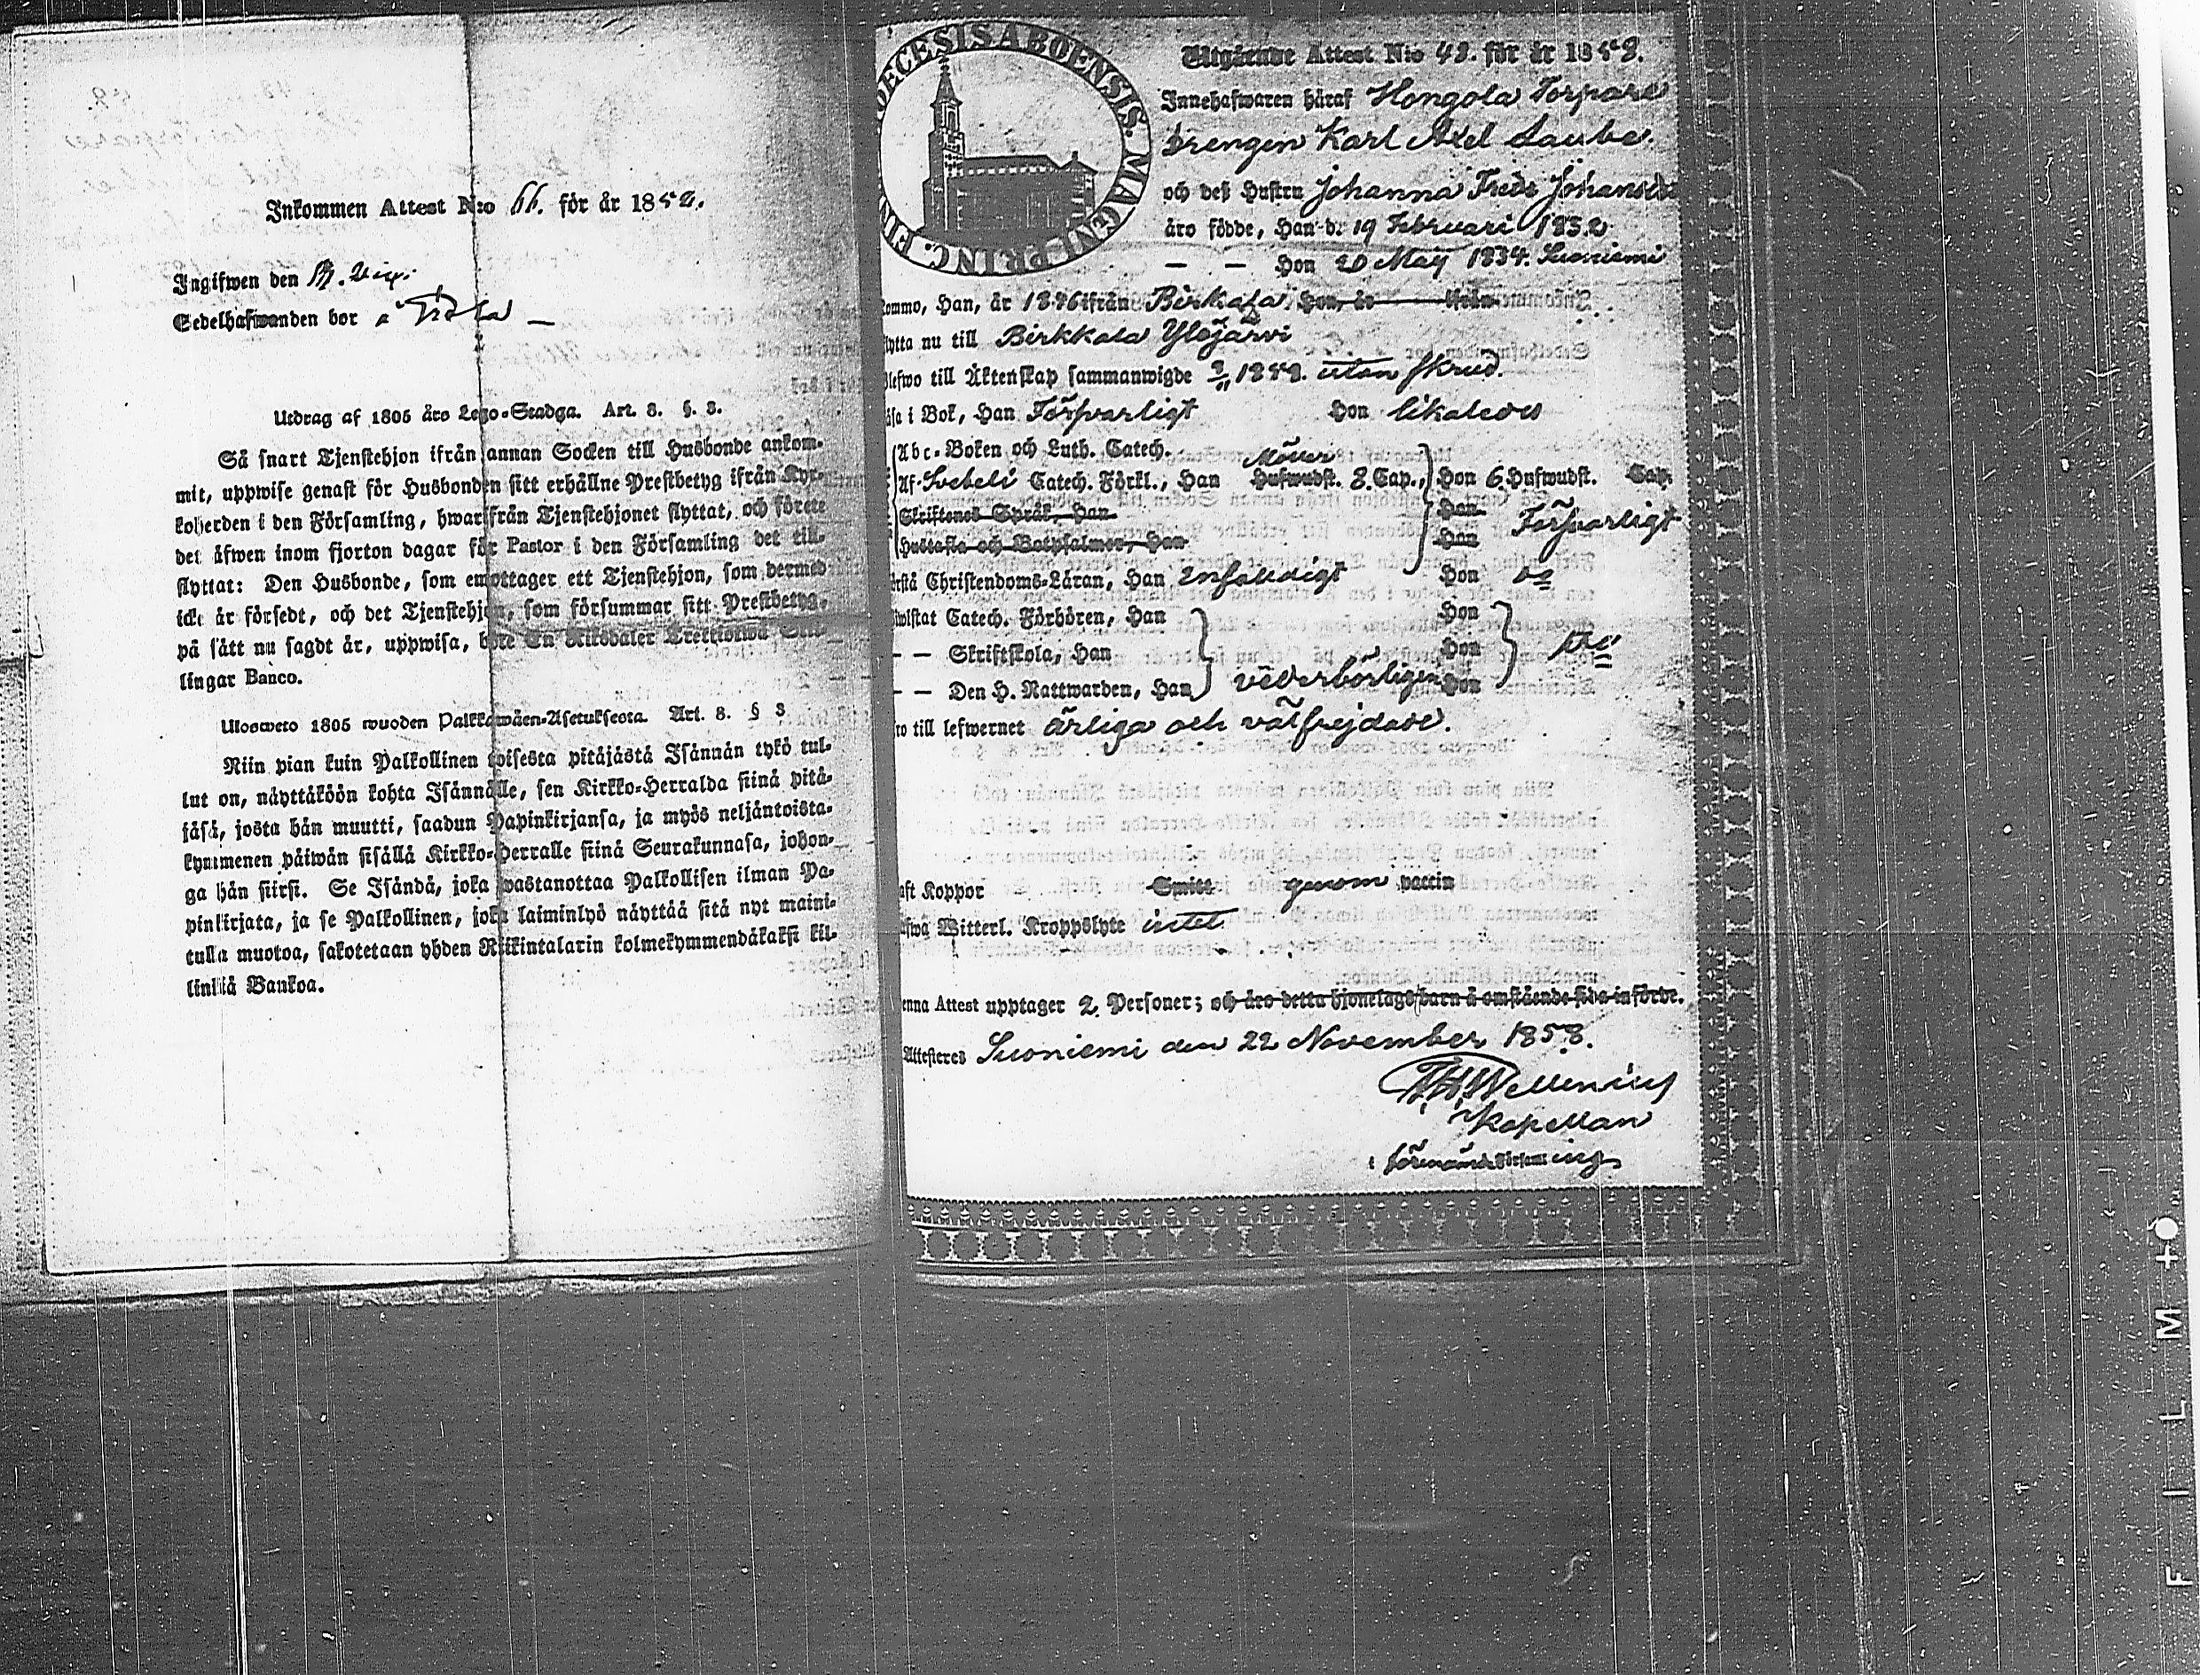 Inkommen Attest N:o 66. för år 1858.
Ingifwen den
Sedelhafwanden bor
Utdrag af 1805 års Lego-Stadga. Art. 8. §. 3.
Så snart Tjenstehjon ifrån annan Socken till Husbonde ankom-
mit, uppwise genast för Husbonden sitt erhållne Prestbetyg ifrån Kyr-
koherden i den Församling, hwarifrån Tjenstehjonet flyttat, och förete
det äfwen inom fjorton dagar för Pastor i den Församling det till-
flyttat: Den Husbonde, som emottager ett Tjenstehjon, som dermed
icke är försedt, och det Tjenstehjon, som försummar sitt Prestbetyg,
på sätt nu sagdt är, uppwisa, böte En Riksdaler Trettiotwå Skil-
lingar Banco.
Ulosweto 1805 wuoden Palkkawäen-Asetuksesta. Art. 8. § 3
Niin pian kuin Palkollinen toisesta pitäjästä Isännän tykö tul-
lut on, näyttäköön kohta Isännälle, sen Kirkko-Herralda siinä pitä-
jäsä, josta hän muutti, saadun Papinkirjansa, ja myös neljäntoista-
kymmenen päiwän sisällä Kirkko-Herralle siinä Seurakunnasa, johon-
ga hän siirsi. Se Isändä, joka wastanottaa Palkollisen ilman Pa-
pinkirjata, ja se Palkollinen, joka laiminlyö näyttää sitä nyt maini-
tulla muotoa, sakotetaan yhden Riikintalarin kolmekymmendäkaksi kil-
linkiä Bankoa.
DIOECESIS ABOENSIS. MAGNI PRINC. FIN
Utgående Attest N:o 43. för år 1858.
Innehafwaren häraf Hongola Torpare
drengen Karl Axel Laube.
och deß Hustru Johanna Fredr Johansdr
äro födde, Han d. 19 Februari 1832
— — Hon 20 Maij 1834. Suoniemi
kommo, Han, år 1846 ifrån Birkala, Hon, år ifrån
flytta nu till Birkkala Ylöjärvi
blefwo till Äktenskap sammanwigde 2/11 1858. utan skrud.
läsa i Bok, Han Försvarligt Hon likaledes
Abc-Boken och Luth. Catech.
Af Svebeli Catech. Förkl., Han Hufwudst. 8. Cap., Hon 6 Hufwudst. Cap.
Skriftenes Språk, Han Hon Försvarligt
Hustafla och Botpsalmer, Han Hon
förstå Christendoms-Läran, Han Enfaldigt Hon do
bewistat Catech. Förhören, Han Hon
— — Skriftskola, Han Hon
— — Den H. Nattwarden, Han vederbörligen Hon
äro till lefwernet ärliga och välfrejdade.
haft Koppor Smitt genom vaccin
hafwa Witterl. Kroppslyte intet
Denna Attest upptager 2. Personer; och äro detta hjonelags barn å omstående sida införde.
Attesteres Suoniemi den 22 November 1858.
Wellenius
Kapellan
i förenämnde Församling
F I L M